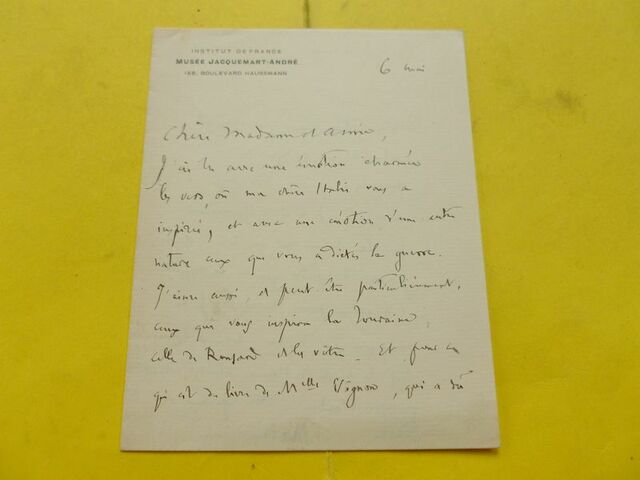 INSTITUT DE FRANCE
MUSÉE JACQUEMART-ANDRÉ
158, BOULEVARD HAUSSMANN
6 mai
Chère Madame et Amie,
J'ai lu avec une émotion charmée
les vers, où ma chère Italie vous a
inspirée, et avec une émotion d'une autre
nature ceux qui vous a dictés la guerre.
J'aime aussi, et peut être particulièrement,
ceux que vous inspira la Touraine,
celle de Ronsard et la vôtre. Et pour ce
qui est du livre de Mlle Vignon, qui a dû